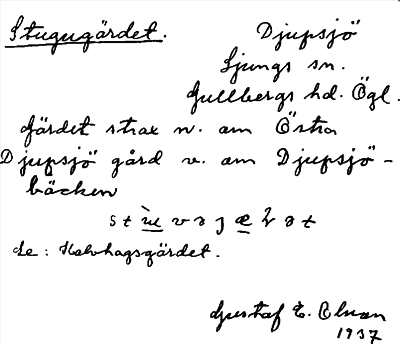 Stugugärdet.
Djupsjö
Ljungs sn.
Gullbergs hd. Ögl.
Gärdet strax n. om Östra
Djupsjö gård v. om Djupsjö-
bäcken
Se: Kalvhagsgärdet.
Gustaf E. Olsson
1937